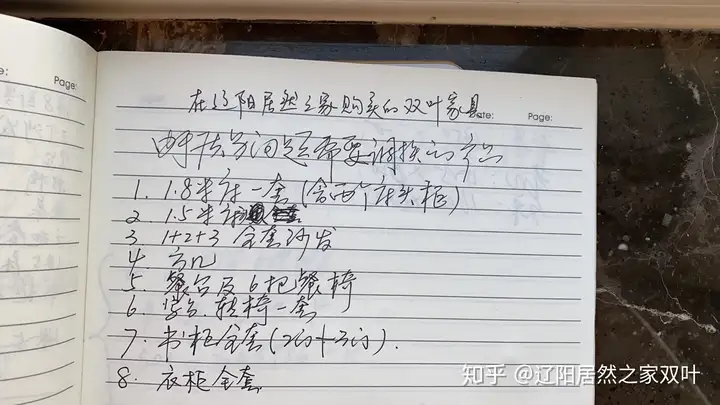 Page:
Date:
Page:
在辽阳居然之家购买的双叶家具
由于质量问题需要调换的产品
1. 1.8米床一套(含两个床头柜)
2 1.5米床
3 1+2+3 全套沙发
4 方几
5. 餐台及6把餐椅
6. 学台 转椅一套
7. 书柜全套(2门+3门).
8. 衣柜全套
知乎 @辽阳居然之家双叶